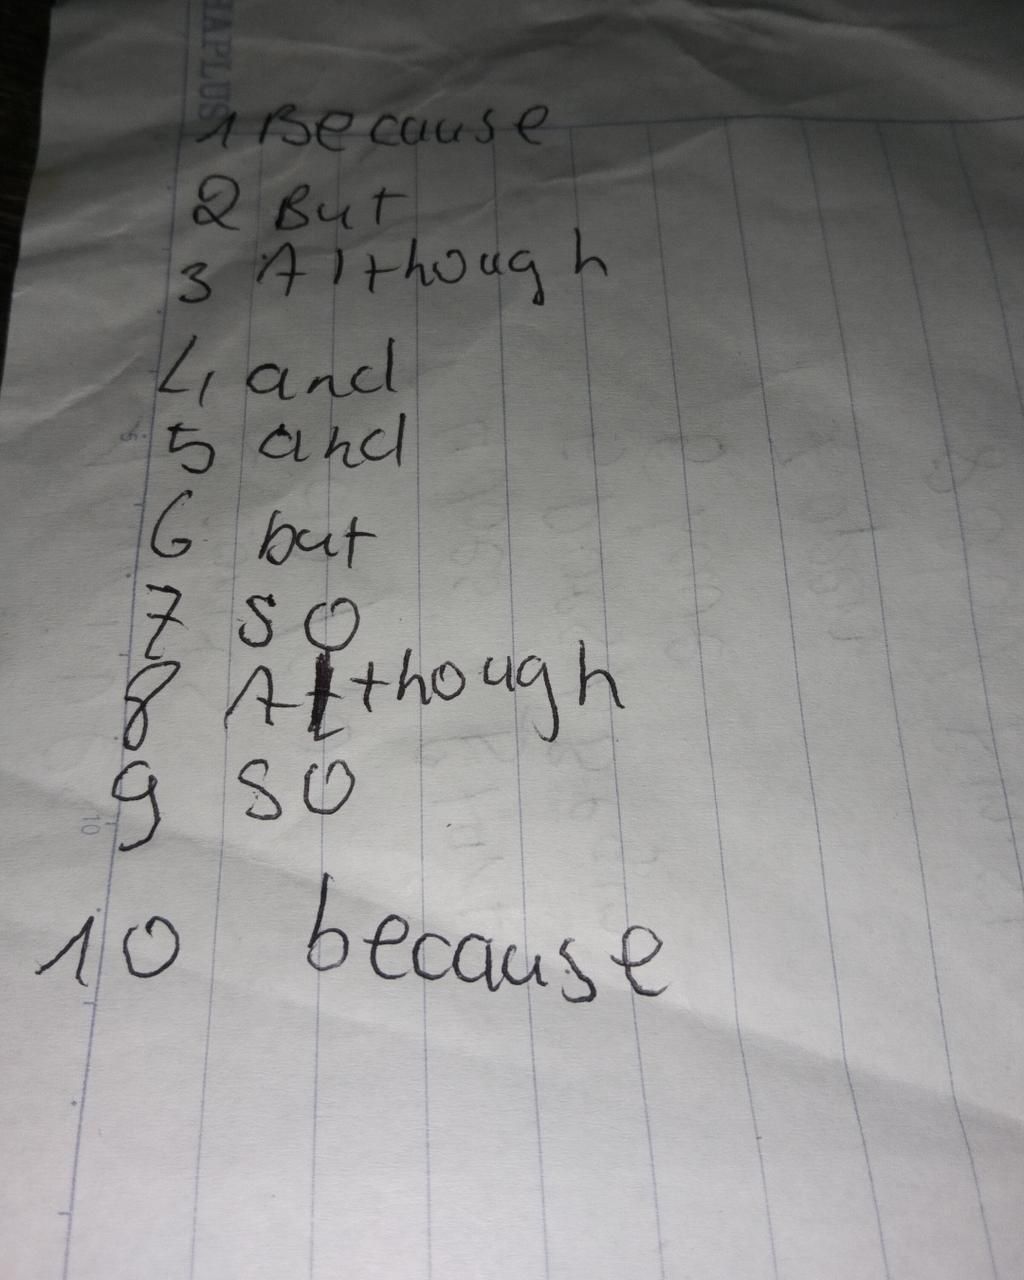 HAPLUS
1 Because
2 But
3 Although
4 and
5 and
6 but
7 so
8 Although
9 so
10 because
5
10